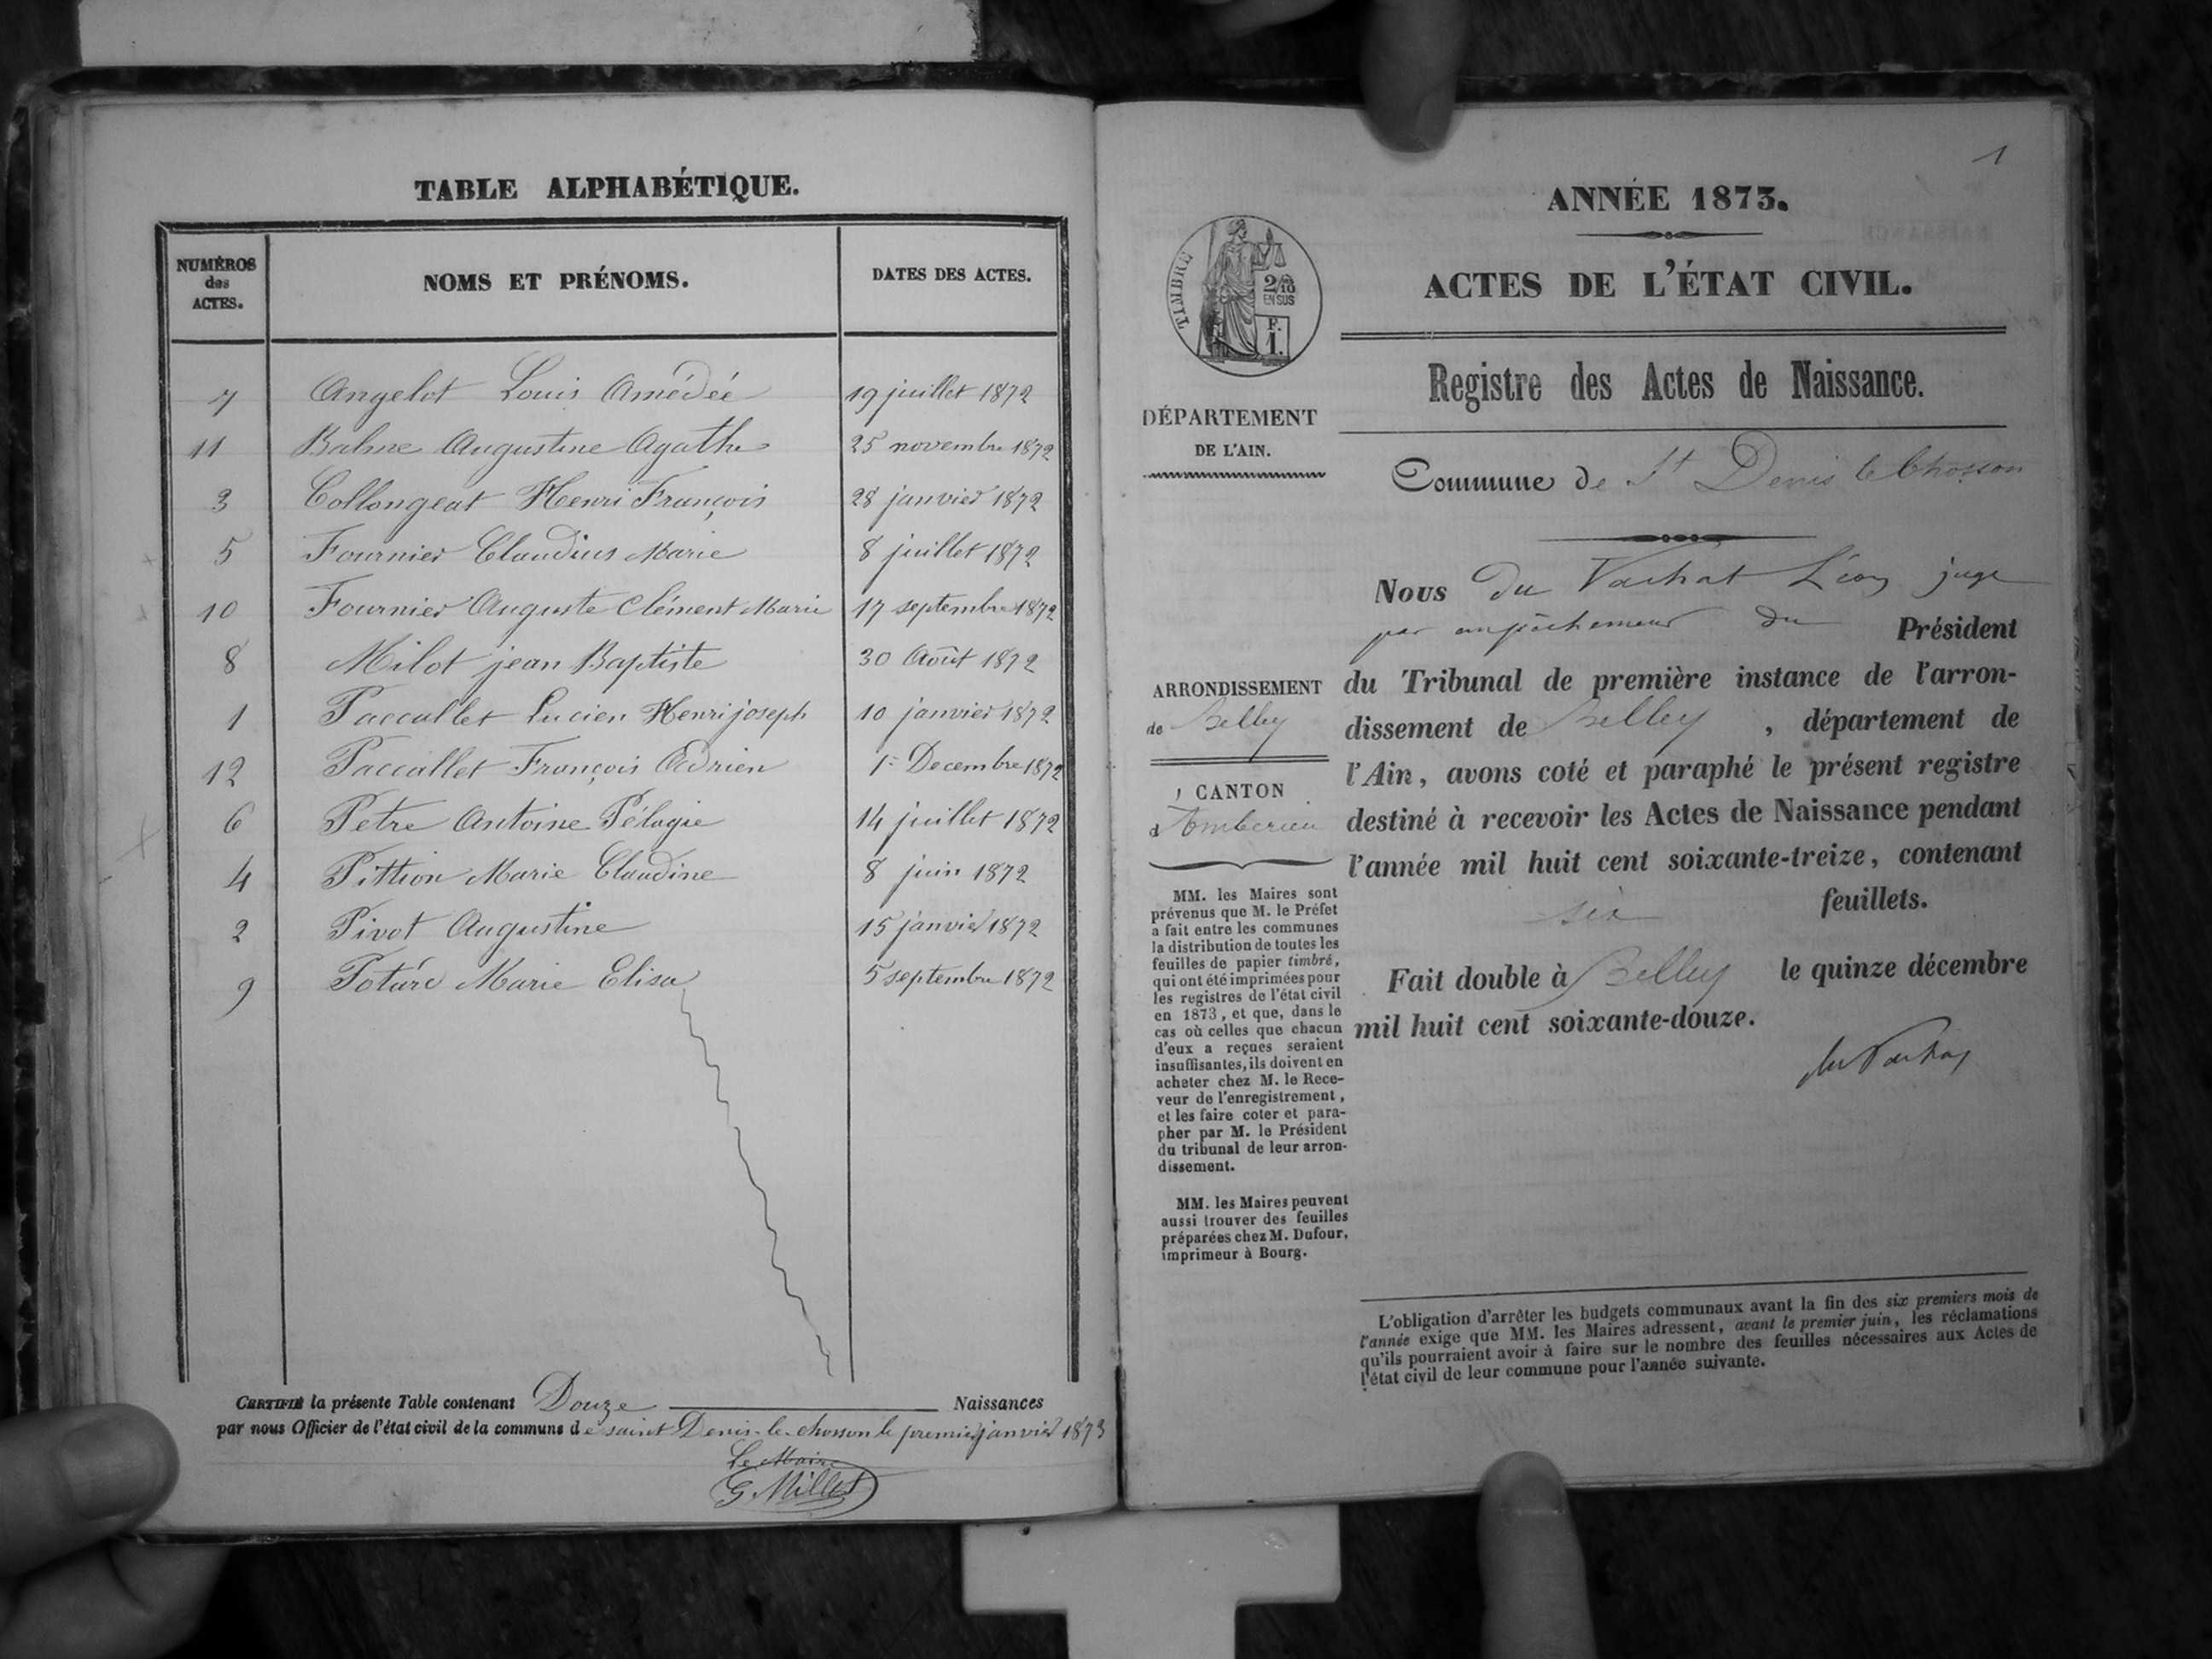 TABLE ALPHABÉTIQUE.
NUMÉROS des ACTES. NOMS ET PRÉNOMS. DATES DES ACTES.
7 Angelot Louis Amédée 19 juillet 1872
11 Balme Augustine Agathe 25 novembre 1872
3 Collongeat Henri François 28 janvier 1872
5 Fournier Claudius Marie 8 juillet 1872
10 Fournier Auguste Clément Marie 17 septembre 1872
8 Milot jean Baptiste 30 Août 1872
1 Paccallet Lucien Henri joseph 10 janvier 1872
12 Paccallet François Adrien 1er Decembre 1872
6 Petre Antoine Pélagie 14 juillet 1872
4 Pittion Marie Claudine 8 juin 1872
2 Pivot Augustine 15 janvier 1872
9 Marie Elisa 5 septembre 1872
CERTIFIÉ la présente Table contenant Douze Naissances
par nous Officier de l'état civil de la commune de saint Denis-le-chosson le premier janvier 1873
Le Maire
G. Millet
1
ANNÉE 1873.
ACTES DE L'ÉTAT CIVIL.
TIMBRE
2/10
EN SUS
F.
1.
Registre des Actes de Naissance.
DÉPARTEMENT
DE L'AIN.
Commune de St Denis le Chosson
Nous Du Vachat Léon juge
par empêchement du Président
du Tribunal de première instance de l'arron-
dissement de Belley , département de
l'Ain, avons coté et paraphé le présent registre
destiné à recevoir les Actes de Naissance pendant
l'année mil huit cent soixante-treize, contenant
six feuillets.
Fait double à Belley le quinze décembre
mil huit cent soixante-douze.
du Vachat
ARRONDISSEMENT
de Belley
CANTON
d'Amberieu
MM. les Maires sont
prévenus que M. le Préfet
a fait entre les communes
la distribution de toutes les
feuilles de papier timbré,
qui ont été imprimées pour
les registres de l'état civil
en 1873, et que, dans le
cas où celles que chacun
d'eux a reçues seraient
insuffisantes, ils doivent en
acheter chez M. le Rece-
veur de l'enregistrement,
et les faire coter et para-
pher par M. le Président
du tribunal de leur arron-
dissement.
MM. les Maires peuvent
aussi trouver des feuilles
préparées chez M. Dufour,
imprimeur à Bourg.
L'obligation d'arrêter les budgets communaux avant la fin des six premiers mois de
l'année exige que MM. les Maires adressent, avant le premier juin, les réclamations
qu'ils pourraient avoir à faire sur le nombre des feuilles nécessaires aux Actes de
l'état civil de leur commune pour l'année suivante.